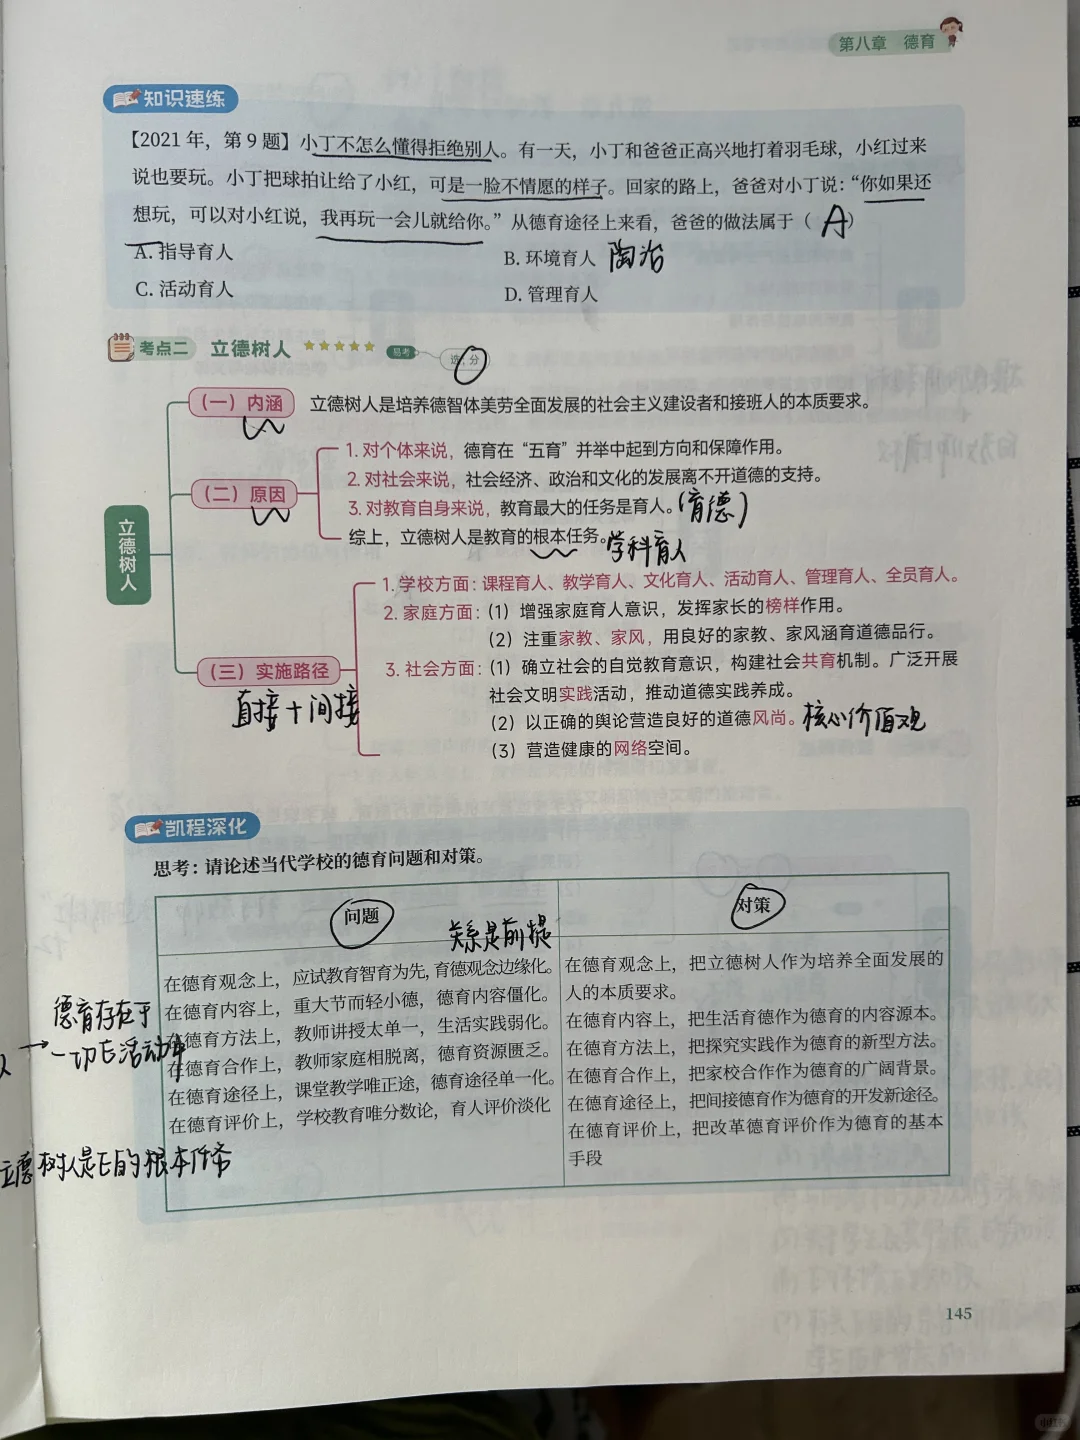 第八章 德育
知识速练
【2021 年，第 9 题】小丁不怎么懂得拒绝别人。有一天，小丁和爸爸正高兴地打着羽毛球，小红过来
说也要玩。小丁把球拍让给了小红，可是一脸不情愿的样子。回家的路上，爸爸对小丁说：“你如果还
想玩，可以对小红说，我再玩一会儿就给你。”从德育途径上来看，爸爸的做法属于（ A ）
A. 指导育人
B. 环境育人 陶冶
C. 活动育人
D. 管理育人
考点二 立德树人 ★★★★★ 易考 选，分
（一）内涵 立德树人是培养德智体美劳全面发展的社会主义建设者和接班人的本质要求。
1. 对个体来说，德育在“五育”并举中起到方向和保障作用。
2. 对社会来说，社会经济、政治和文化的发展离不开道德的支持。
（二）原因
3. 对教育自身来说，教育最大的任务是育人。（育德）
综上，立德树人是教育的根本任务。
学科育人
立德树人
1. 学校方面：课程育人、教学育人、文化育人、活动育人、管理育人、全员育人。
2. 家庭方面：（1）增强家庭育人意识，发挥家长的榜样作用。
（2）注重家教、家风，用良好的家教、家风涵育道德品行。
（三）实施路径
直接＋间接
3. 社会方面：（1）确立社会的自觉教育意识，构建社会共育机制。广泛开展
社会文明实践活动，推动道德实践养成。
（2）以正确的舆论营造良好的道德风尚。核心价值观
（3）营造健康的网络空间。
凯程深化
思考：请论述当代学校的德育问题和对策。
问题
关系是前提
在德育观念上，应试教育智育为先，育德观念边缘化。
在德育内容上，重大节而轻小德，德育内容僵化。
在德育方法上，教师讲授太单一，生活实践弱化。
在德育合作上，教师家庭相脱离，德育资源匮乏。
在德育途径上，课堂教学唯正途，德育途径单一化。
在德育评价上，学校教育唯分数论，育人评价淡化
对策
在德育观念上，把立德树人作为培养全面发展的
人的本质要求。
在德育内容上，把生活育德作为德育的内容源本。
在德育方法上，把探究实践作为德育的新型方法。
在德育合作上，把家校合作作为德育的广阔背景。
在德育途径上，把间接德育作为德育的开发新途径。
在德育评价上，把改革德育评价作为德育的基本
手段
德育存在于
一切E活动中
立德树人是E的根本任务
145